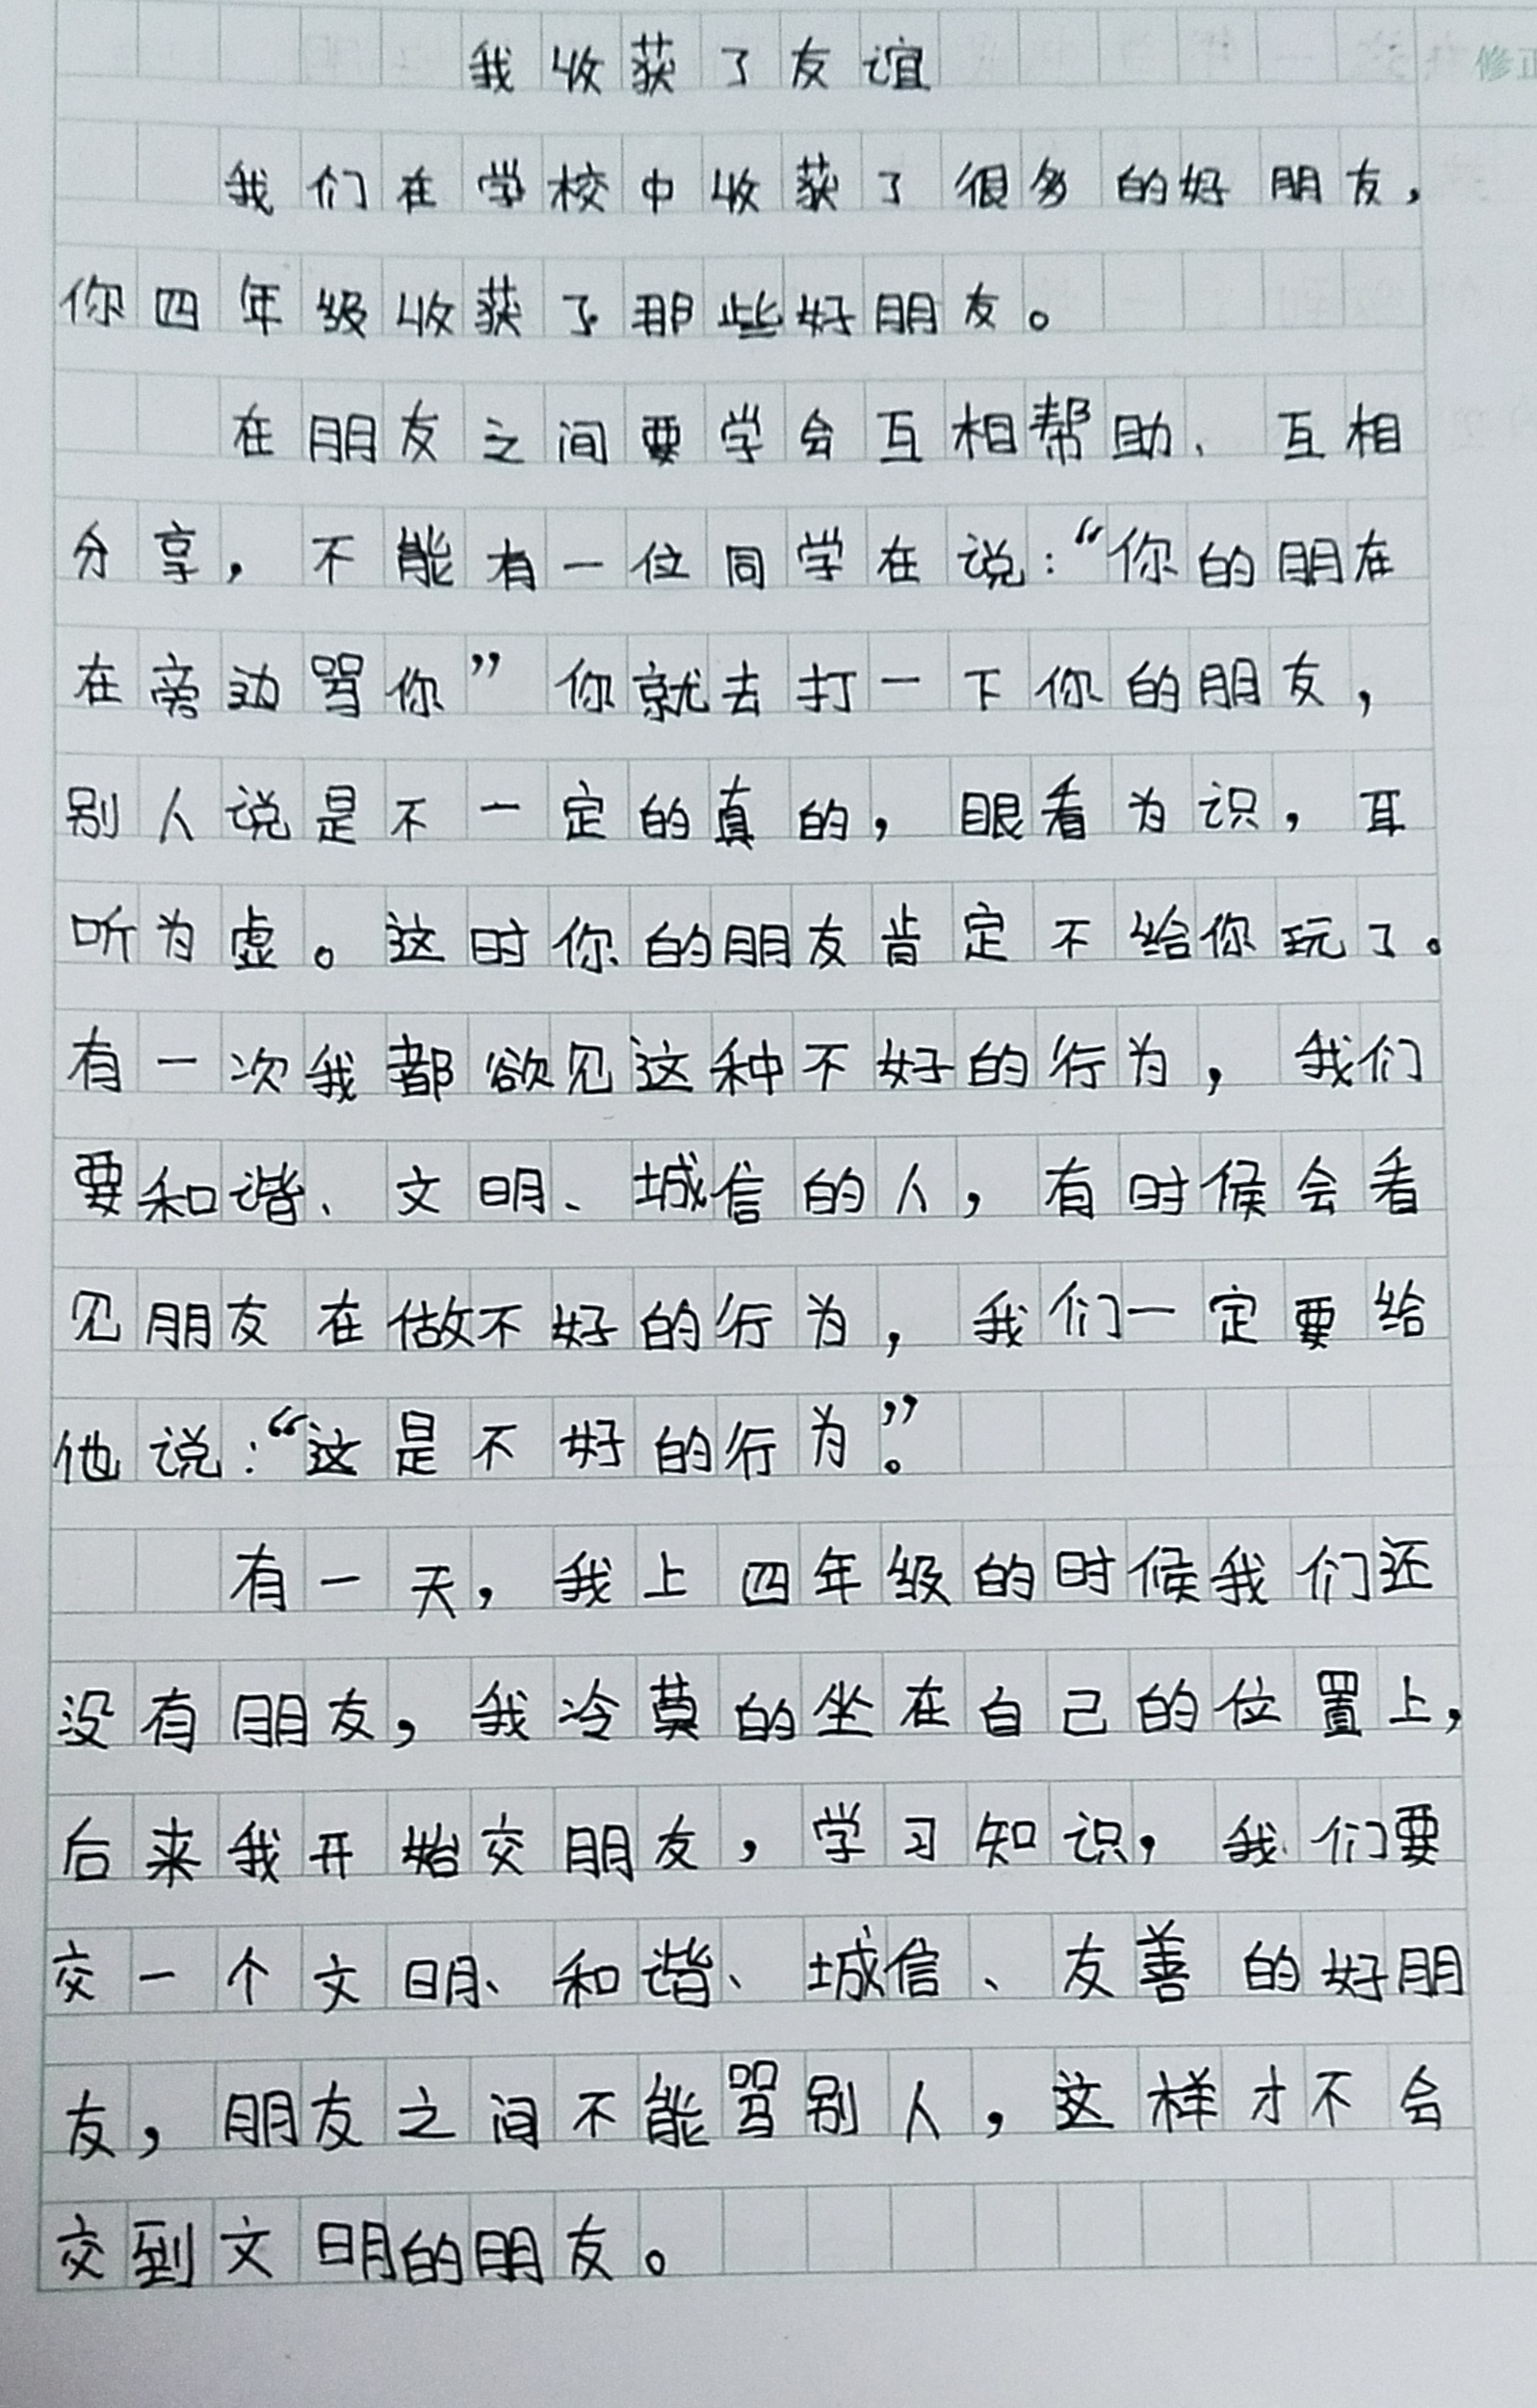 修正
我收获了友谊
我们在学校中收获了很多的好朋友，
你四年级收获了那些好朋友。
在朋友之间要学会互相帮助、互相
分享，不能有一位同学在说：“你的朋在
在旁边骂你”你就去打一下你的朋友，
别人说是不一定的真的，眼看为识，耳
听为虚。这时你的朋友肯定不给你玩了。
有一次我都欲见这种不好的行为，我们
要和谐、文明、城信的人，有时候会看
见朋友在做不好的行为，我们一定要给
他说：“这是不好的行为”。
有一天，我上四年级的时候我们还
没有朋友，我冷莫的坐在自己的位置上，
后来我开始交朋友，学习知识，我们要
交一个文明、和谐、城信、友善的好朋
友，朋友之间不能骂别人，这样才不会
交到文明的朋友。